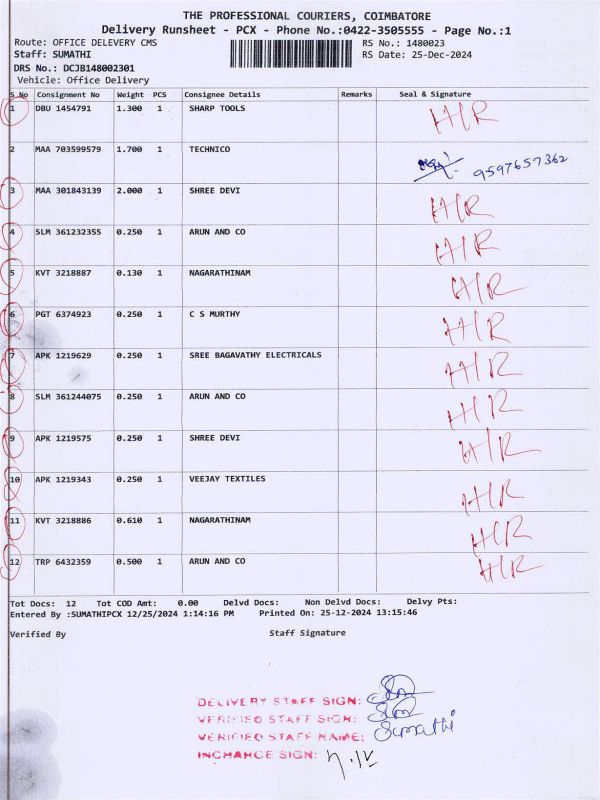 THE PROFESSIONAL COURIERS, COIMBATORE
Delivery Runsheet - PCX - Phone No.:0422-3505555 - Page No.:1
Route: OFFICE DELEVERY CMS RS No.: 1480023
Staff: SUMATHI RS Date: 25-Dec-2024
DRS No.: DCJB148002301
Vehicle: Office Delivery
S No Consignment No Weight PCS Consignee Details Remarks Seal & Signature
1 DBU 1454791 1.300 1 SHARP TOOLS H/R
2 MAA 703599579 1.700 1 TECHNICO 9597657362
3 MAA 301843139 2.000 1 SHREE DEVI H/R
4 SLM 361232355 0.250 1 ARUN AND CO H/R
5 KVT 3218887 0.130 1 NAGARATHINAM H/R
6 PGT 6374923 0.250 1 C S MURTHY H/R
7 APK 1219629 0.250 1 SREE BAGAVATHY ELECTRICALS H/R
8 SLM 361244075 0.250 1 ARUN AND CO H/R
9 APK 1219575 0.250 1 SHREE DEVI H/R
10 APK 1219343 0.250 1 VEEJAY TEXTILES H/R
11 KVT 3218886 0.610 1 NAGARATHINAM H/R
12 TRP 6432359 0.500 1 ARUN AND CO H/R
Tot Docs: 12 Tot COD Amt: 0.00 Delvd Docs: Non Delvd Docs: Delvy Pts:
Entered By :SUMATHIPCX 12/25/2024 1:14:16 PM Printed On: 25-12-2024 13:15:46
Verified By Staff Signature
DELIVERY STAFF SIGN:
VERIFIED STAFF SIGN:
VERIFIED STAFF NAME: Sumathi
INCHARGE SIGN: